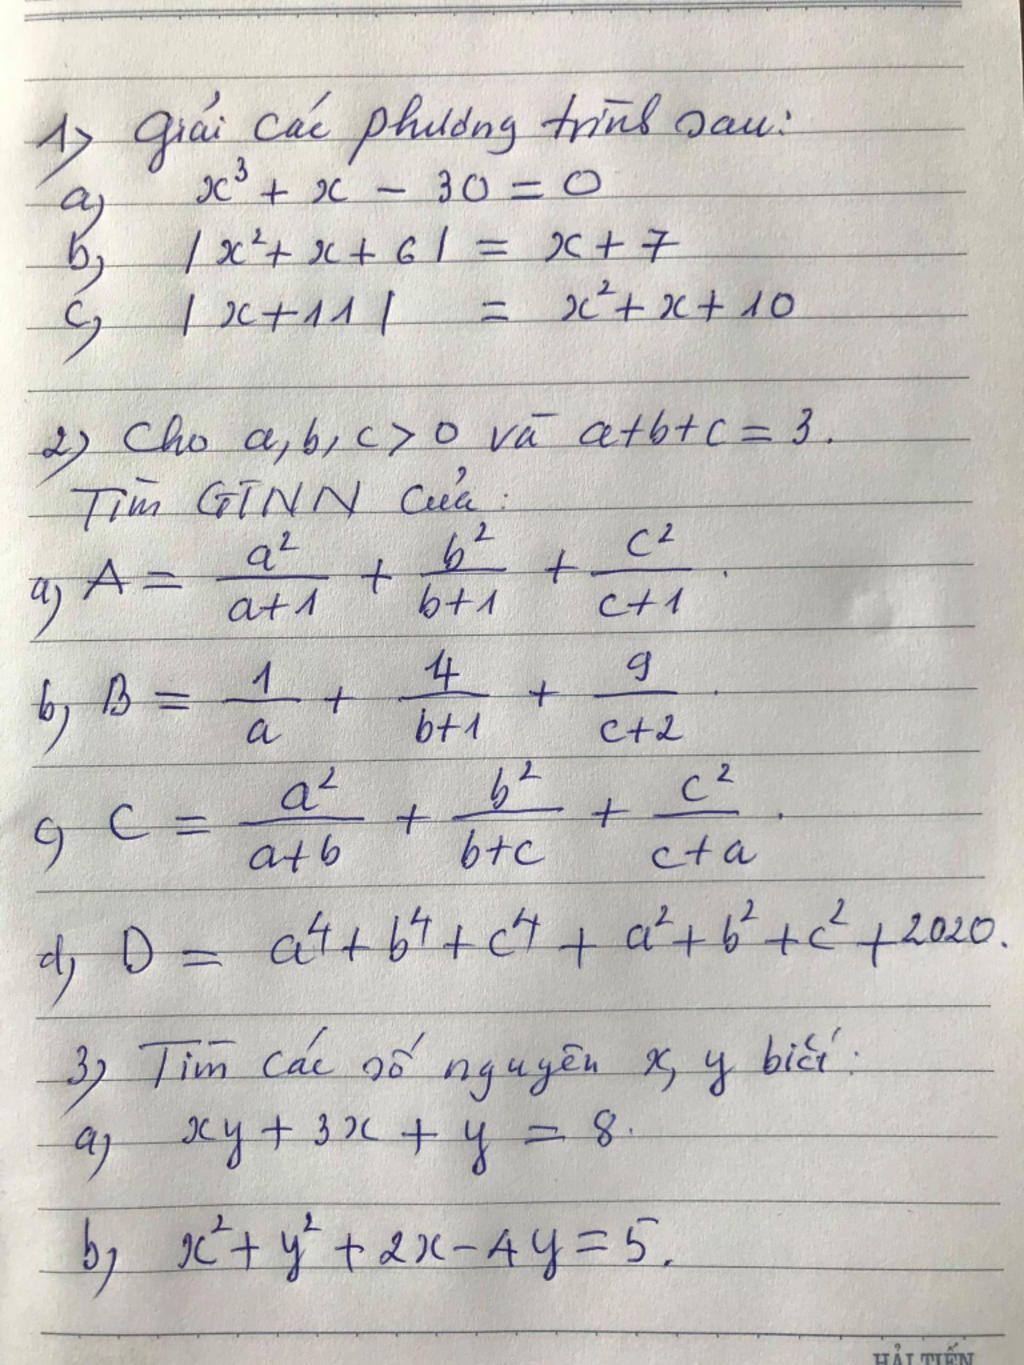 1) Giải các phương trình sau:
a) x³ + x - 30 = 0
b) |x² + x + 6| = x + 7
c) |x + 11| = x² + x + 10
2) Cho a, b, c > 0 và a + b + c = 3.
Tìm GTNN của:
a) A = a²/(a+1) + b²/(b+1) + c²/(c+1).
b) B = 1/a + 4/(b+1) + 9/(c+2).
c) C = a²/(a+b) + b²/(b+c) + c²/(c+a).
d) D = a⁴ + b⁴ + c⁴ + a² + b² + c² + 2020.
3) Tìm các số nguyên x, y biết:
a) xy + 3x + y = 8.
b) x² + y² + 2x - 4y = 5.
HẢI TIẾN